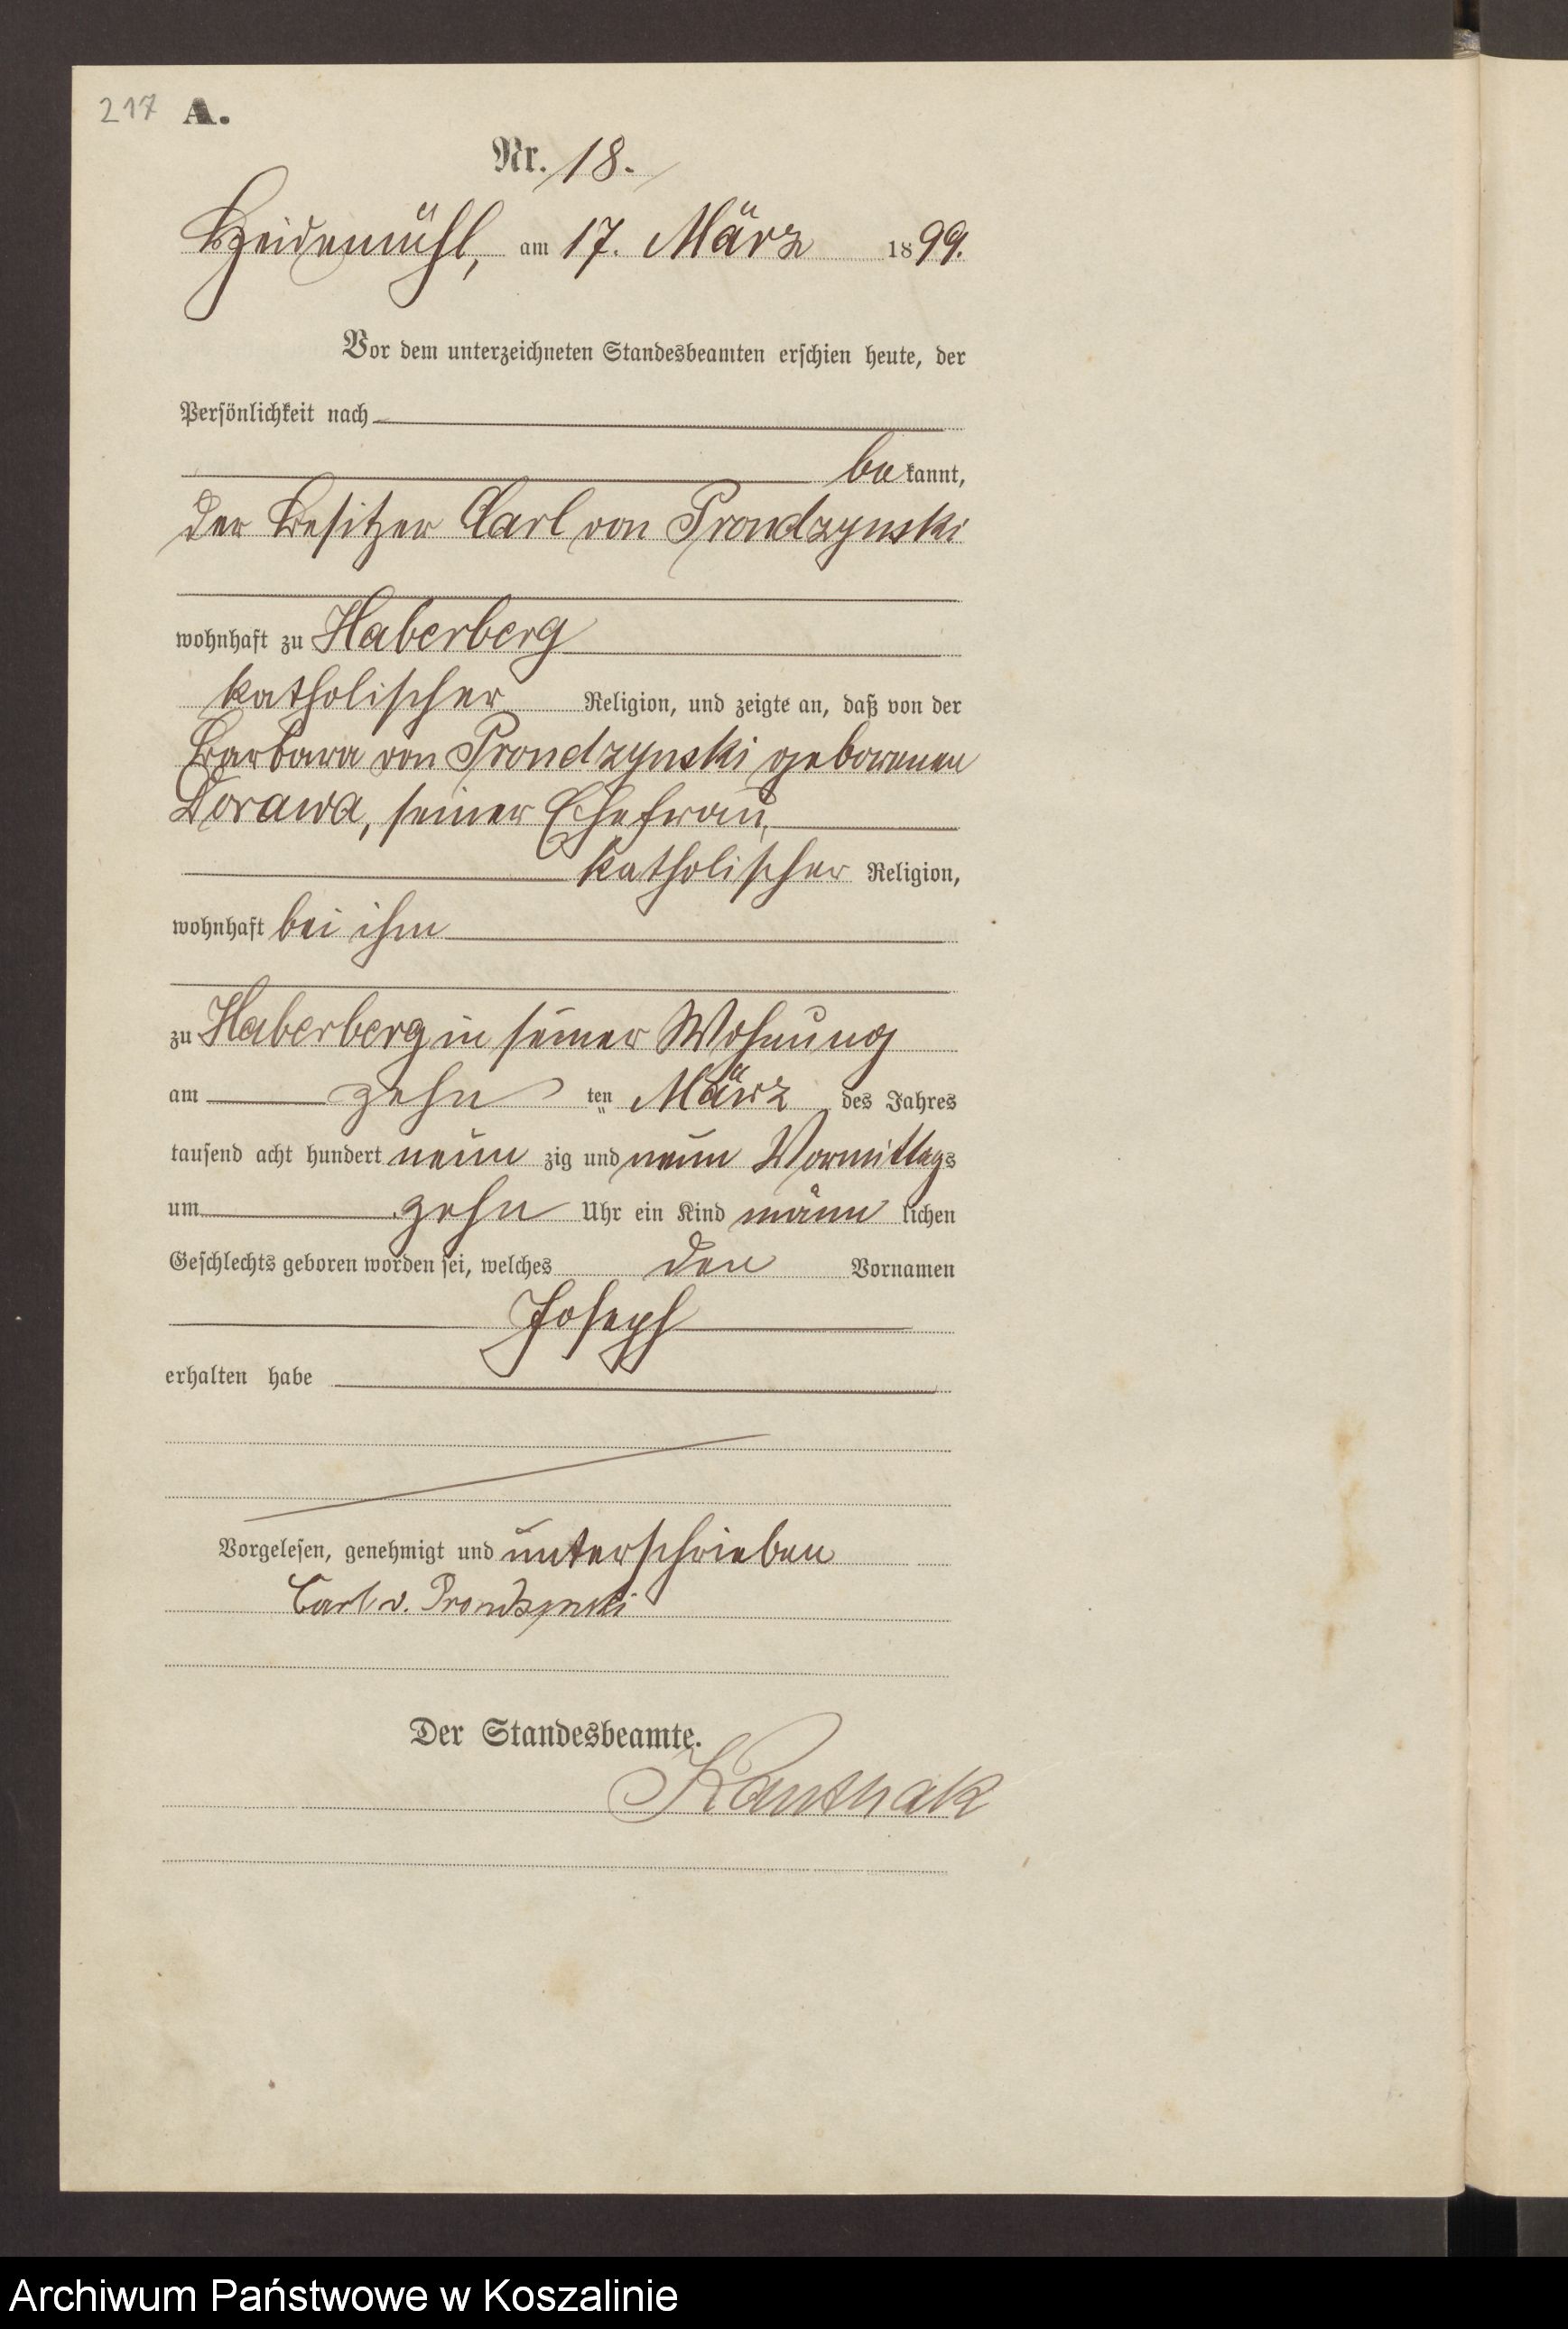 217 A.
Nr. 18.
Heidemühl, am 17. März 1899.
Vor dem unterzeichneten Standesbeamten erschien heute, der
Persönlichkeit nach
bekannt,
der Besitzer Carl von Prondzynski
wohnhaft zu Haberberg
katholischer Religion, und zeigte an, daß von der
Barbara von Prondzynski geborenen
Dorawa, seiner Ehefrau,
katholischer Religion,
wohnhaft bei ihm
zu Haberberg in seiner Wohnung
am zehn ten März des Jahres
tausend acht hundert neun zig und neun Vormittags
um zehn Uhr ein Kind männ lichen
Geschlechts geboren worden sei, welches den Vornamen
Joseph
erhalten habe
Vorgelesen, genehmigt und unterschrieben
Carl v. Prondzynski
Der Standesbeamte.
Kanthak
Archiwum Państwowe w Koszalinie